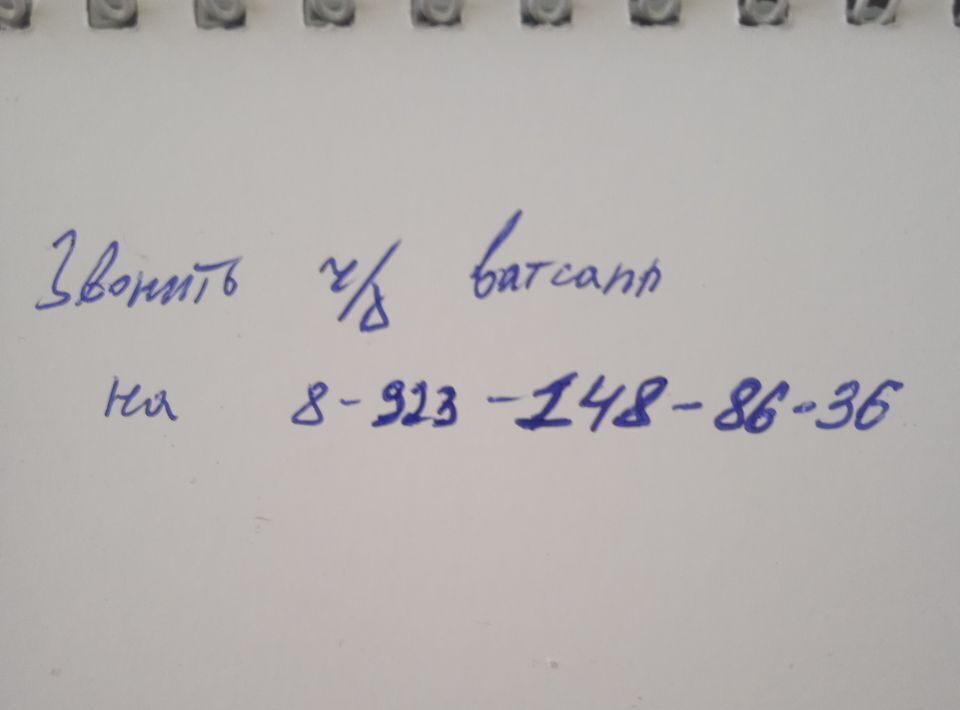 Звонить ч/з ватсапп
на 8-923-148-86-36